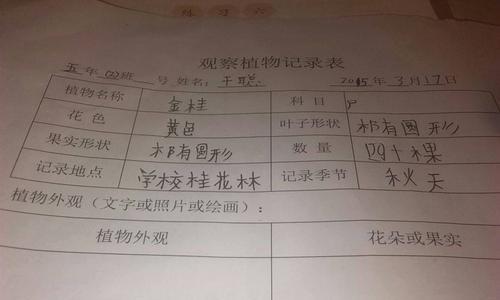 练习六
观察植物记录表
五年(2)班 号 姓名: 聪 2015年3月17日
植物名称 金桂 科目
花色 黄色 叶子形状 椭圆形
果实形状 椭圆形 数量 四十棵
记录地点 学校桂花林 记录季节 秋天
植物外观（文字或照片或绘画）：
植物外观 花朵或果实